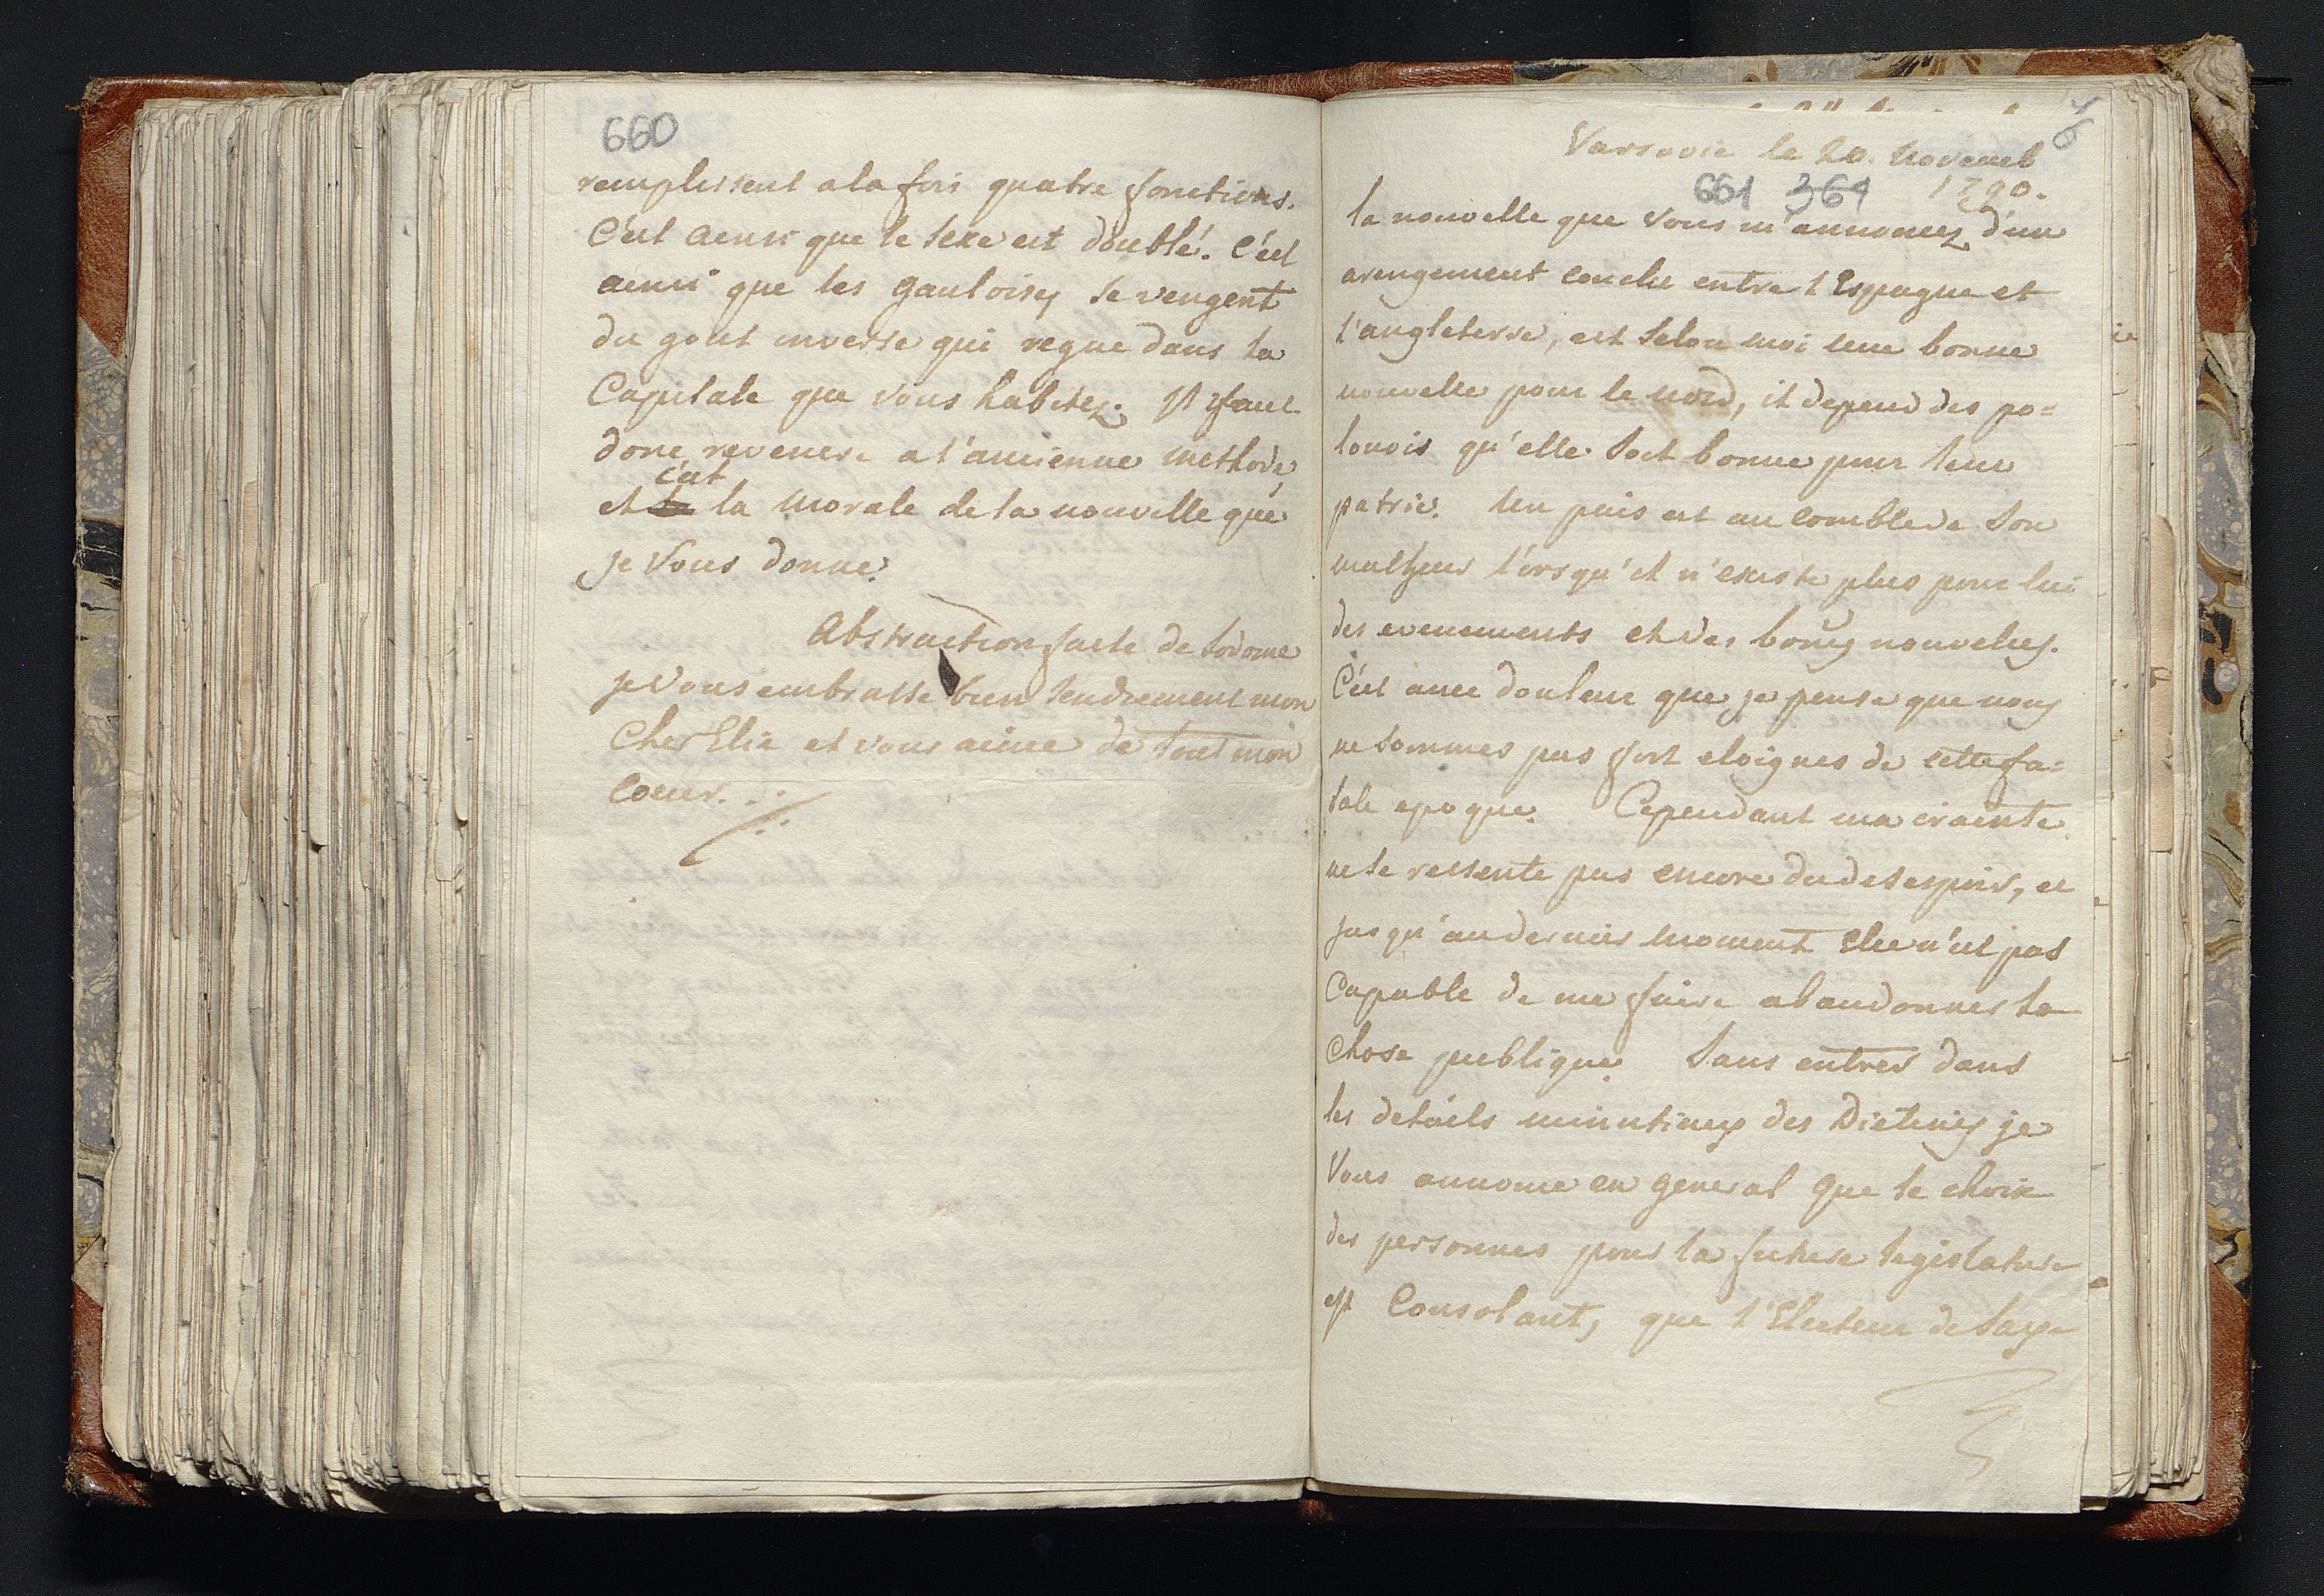 660
remplissent a la fois quatre fonctions.
C'est ainsi que le sexe est doublé. C'est
ainsi que les gauloises se vengent
du gout inverse qui regne dans la
Capitale que vous habitez. Il faut
donc revenir a l'ancienne methode,
c'est
et la morale de la nouvelle que
je vous donne.
Abstraction faite de Sodome
je vous embrasse bien tendrement mon
Cher Elie et vous aime de tout mon
coeur.
Varsovie le 20. Novemb
661 364 1790.
la nouvelle que vous m'annoncez d'un
arengement conclu entre l'Espagne et
l'angleterre, est selon moi une bonne
nouvelle pour le nord, il depend des po=
lonois qu'elle soit bonne pour leur
patrie. Un païs est au comble de son
malheur lorsqu'il n'existe plus pour lui
des evenements et des bones nouvelles.
C'est avec douleur que je pense que nous
ne sommes pas fort eloignes de cette fa=
tale epoque. Cependant ma crainte
ne se ressente pas encore du desespoir, et
jusqu'au dernier moment elle n'est pas
Capable de me faire abandonner la
chose publique. Sans entrer dans
les details minutieux des Dietines je
Vous annonce en general que le choix
des personnes pour la future legislature
est Consolant, que l'Electeur de Saxe